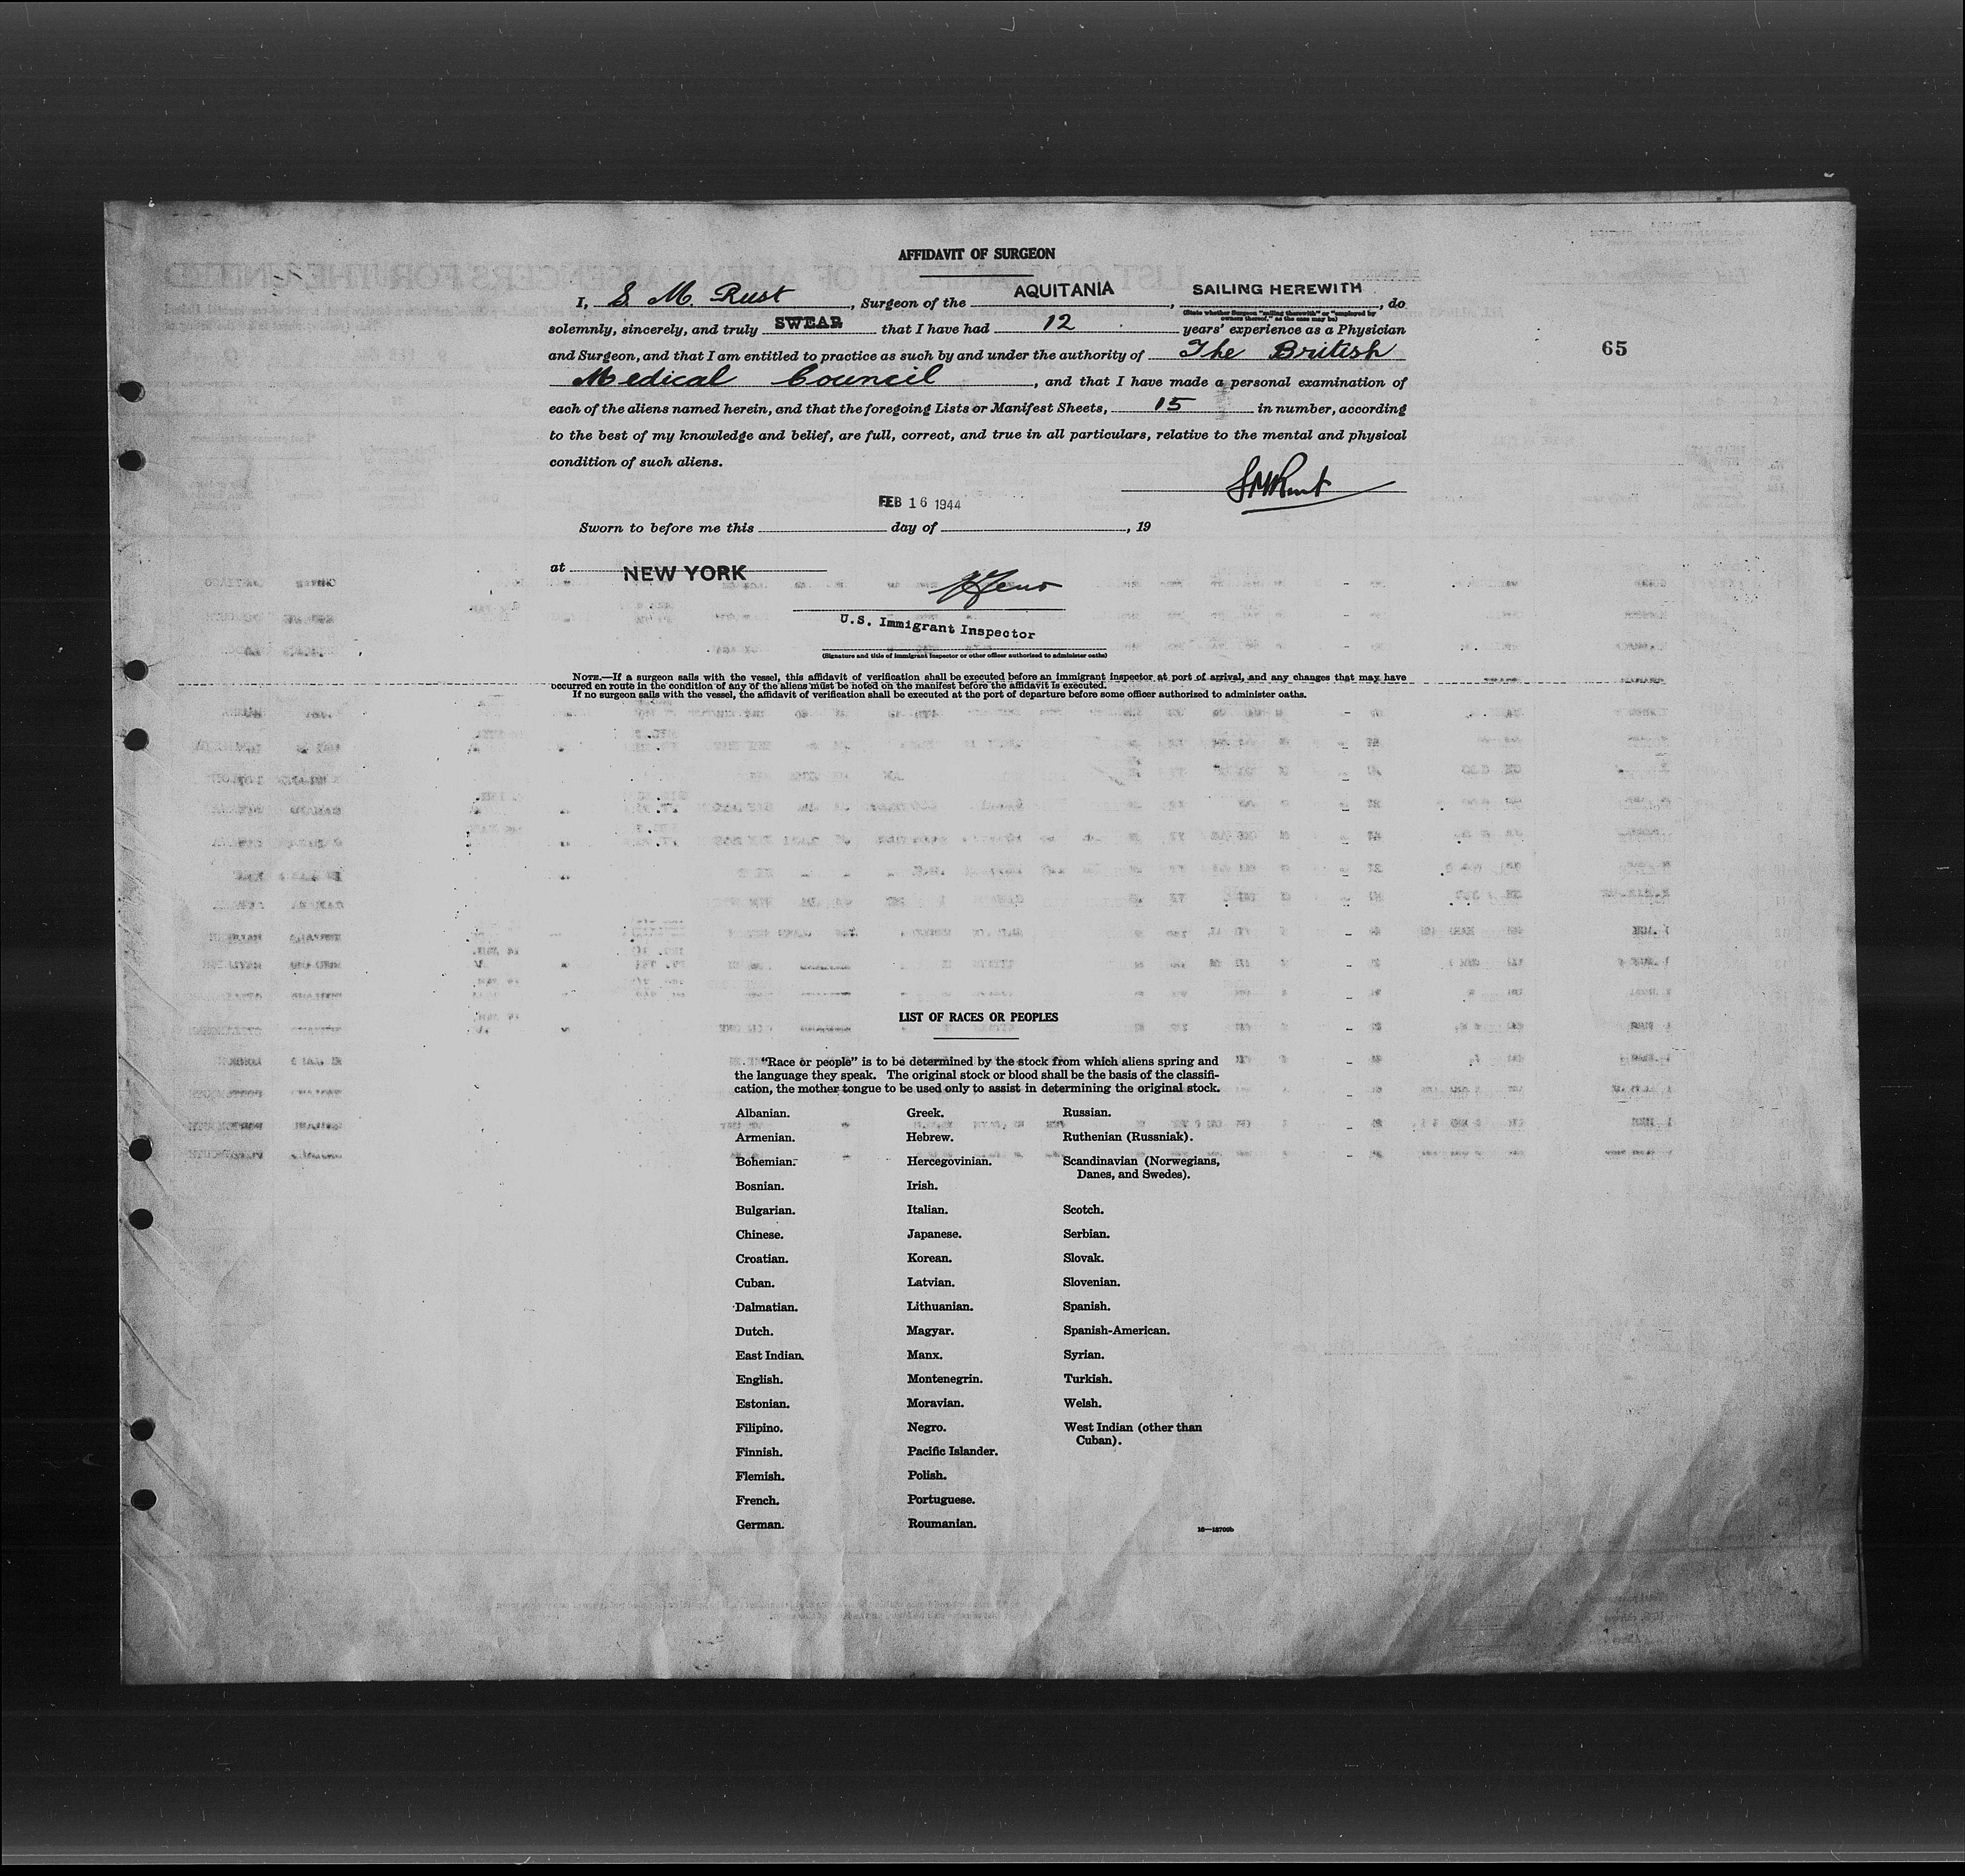 AFFIDAVIT OF SURGEON
I, S. M. Rust, Surgeon of the AQUITANIA, SAILING HEREWITH, do
(State whether Surgeon "sailing therewith" or "employed by
owners thereof," as the case may be)
solemnly, sincerely, and truly SWEAR that I have had 12 years' experience as a Physician
and Surgeon, and that I am entitled to practice as such by and under the authority of The British
Medical Council, and that I have made a personal examination of
each of the aliens named herein, and that the foregoing Lists or Manifest Sheets, 15 in number, according
to the best of my knowledge and belief, are full, correct, and true in all particulars, relative to the mental and physical
condition of such aliens.
65
S M Rust
FEB 16 1944
Sworn to before me this day of , 19
at NEW YORK
U.S. Immigrant Inspector
(Signature and title of immigrant inspector or other officer authorized to administer oaths)
NOTE.—If a surgeon sails with the vessel, this affidavit of verification shall be executed before an immigrant inspector at port of arrival, and any changes that may have
occurred en route in the condition of any of the aliens must be noted on the manifest before the affidavit is executed.
If no surgeon sails with the vessel, the affidavit of verification shall be executed at the port of departure before some officer authorized to administer oaths.
LIST OF RACES OR PEOPLES
"Race or people" is to be determined by the stock from which aliens spring and
the language they speak. The original stock or blood shall be the basis of the classifi-
cation, the mother tongue to be used only to assist in determining the original stock.
Albanian.
Armenian.
Bohemian.
Bosnian.
Bulgarian.
Chinese.
Croatian.
Cuban.
Dalmatian.
Dutch.
East Indian.
English.
Estonian.
Filipino.
Finnish.
Flemish.
French.
German.
Greek.
Hebrew.
Hercegovinian.
Irish.
Italian.
Japanese.
Korean.
Latvian.
Lithuanian.
Magyar.
Manx.
Montenegrin.
Moravian.
Negro.
Pacific Islander.
Polish.
Portuguese.
Roumanian.
Russian.
Ruthenian (Russniak).
Scandinavian (Norwegians,
Danes, and Swedes).
Scotch.
Serbian.
Slovak.
Slovenian.
Spanish.
Spanish-American.
Syrian.
Turkish.
Welsh.
West Indian (other than
Cuban).